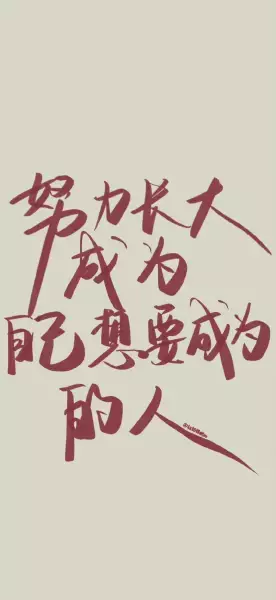 努力长大
成为
自己想要成为
的人